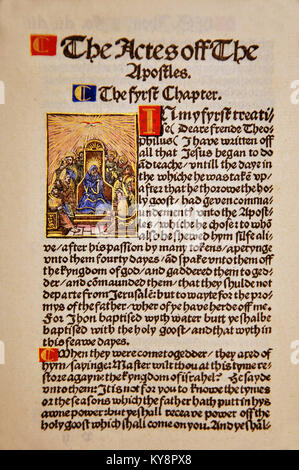 The Actes off The
Apostles.
The fyrst Chapter.
In my fyrst treati
se (Deare frende Theo
philus) I have written off
all that Jesus began to do
ad teache/ untill the daye in
the whiche he was takē vp/
after that he thorowe the ho/
ly goost/ had geven comma/
undementꝭ vnto the Apost/
les/ which he chose: to whō
also he shewed hym silfe ali/
ve/ after his passion by many tokens/ aperynge
vnto them fourty dayes/ ād spake vnto them off
the kyngdom of god/ and gaddered them to ged/
der/ and cōmaunded them/ that they shulde not
departe from Jerusalē: but to wayte for the pro/
mys of the father/ wher of ye have herde off me.
For Jhon baptised wyth water: but ye shalbe
baptised with the holy goost/ and that wyth in
this feawe dayes.
When they were come to gedder/ they axed of
hym/ sayinge: Master wilt thou at this tyme re/
store agayne the kyngdom of israhel? He sayde
vnto them: It is not for you to knowe the tymes
or the seasons which the father hath put in hys
awne power: but ye shall receave power off the
holy goost which shall come on you. And ye shal/
alamy
Image ID: MY8PR8
www.alamy.com